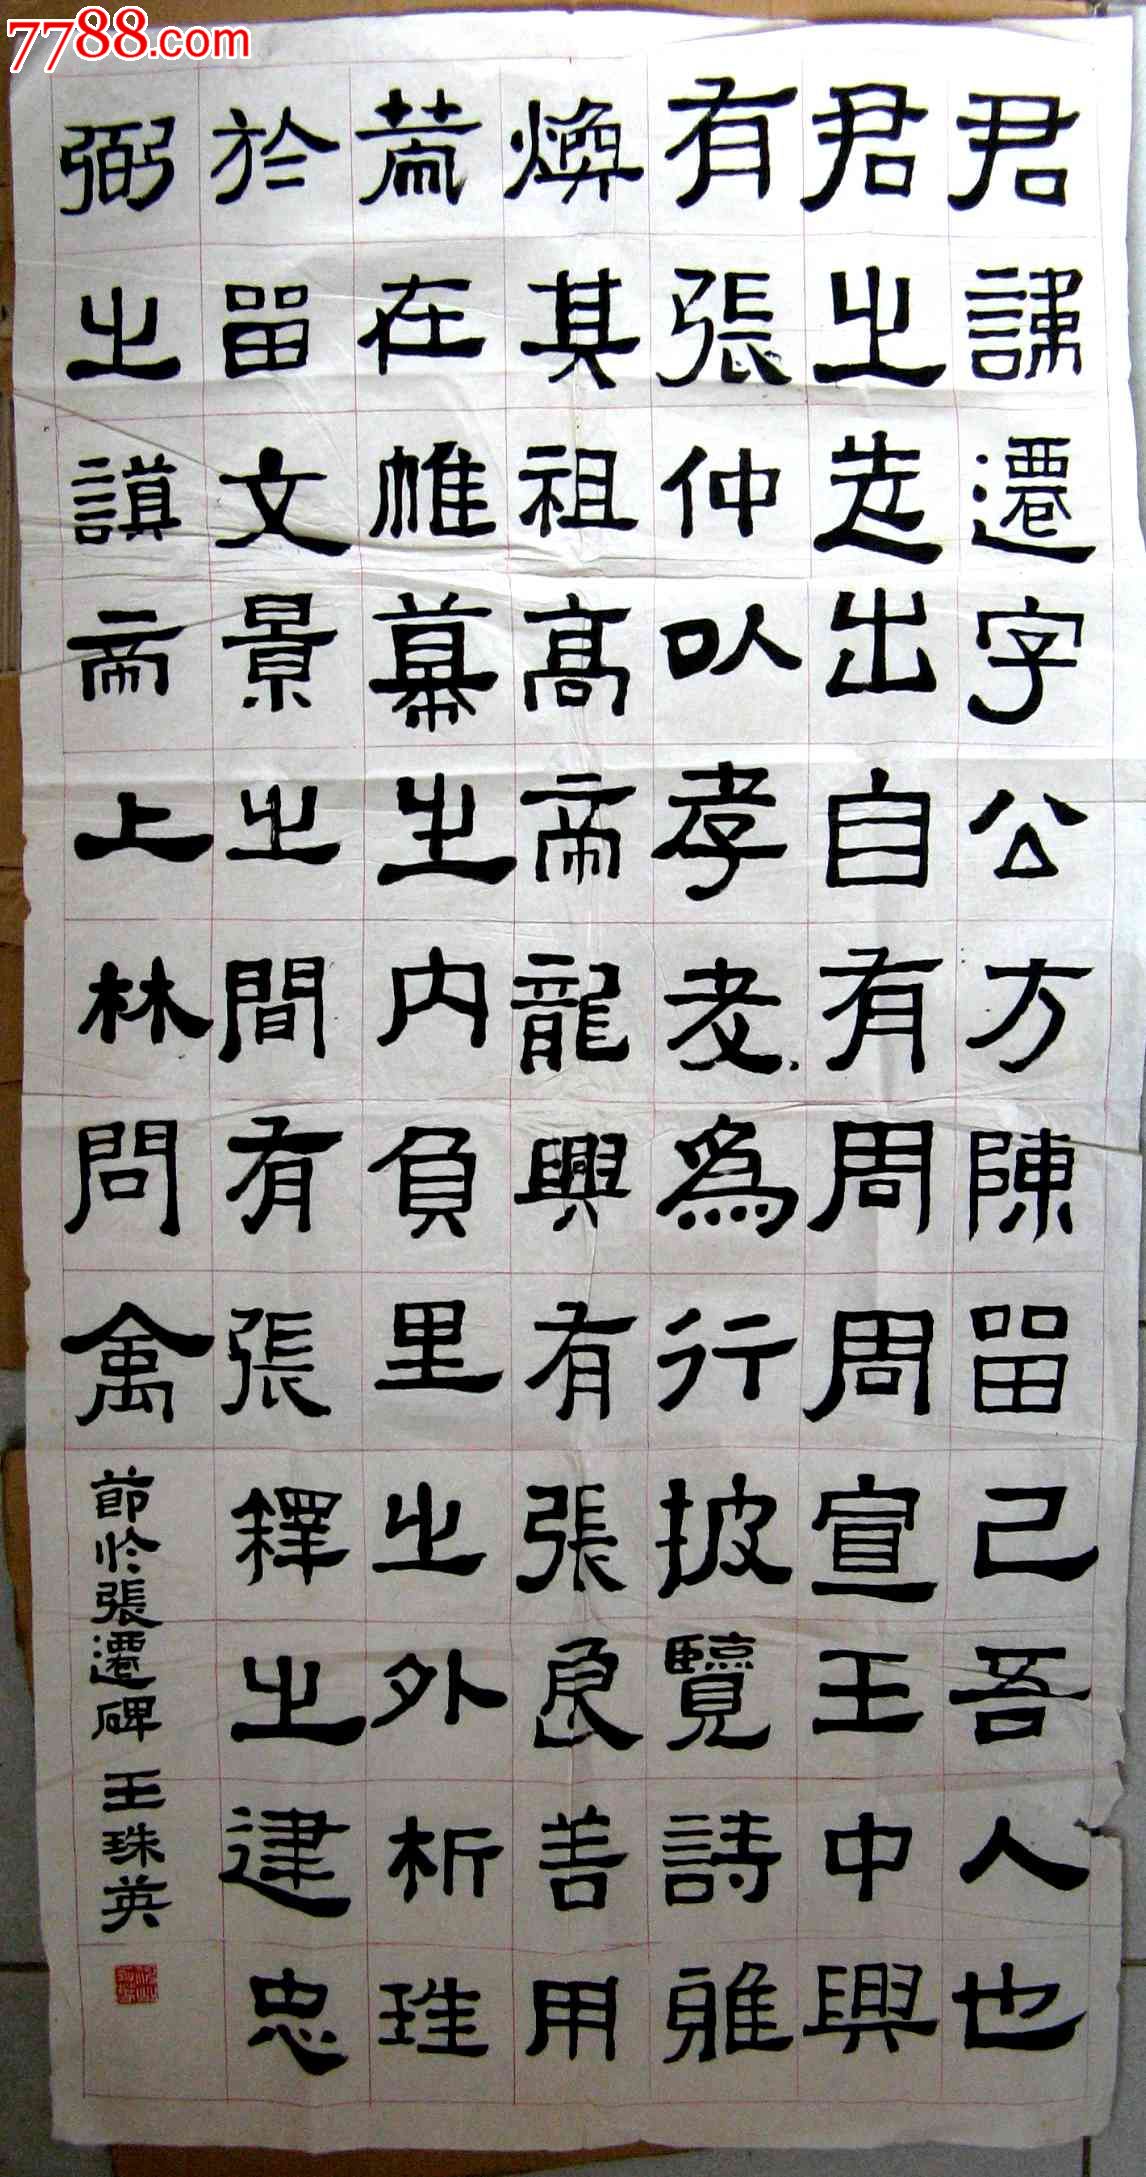 7788.com
君諱遷字公方陳留己吾人也
君之先出自有周周宣王中興
有張仲以孝友為行披覽詩雅
煥其祖高帝龍興有張良善用
在帷幕之內負里之外析珪
於留文景之間有張釋之建忠
弼之謨帝上林問禽
節於張遷碑 王珠英